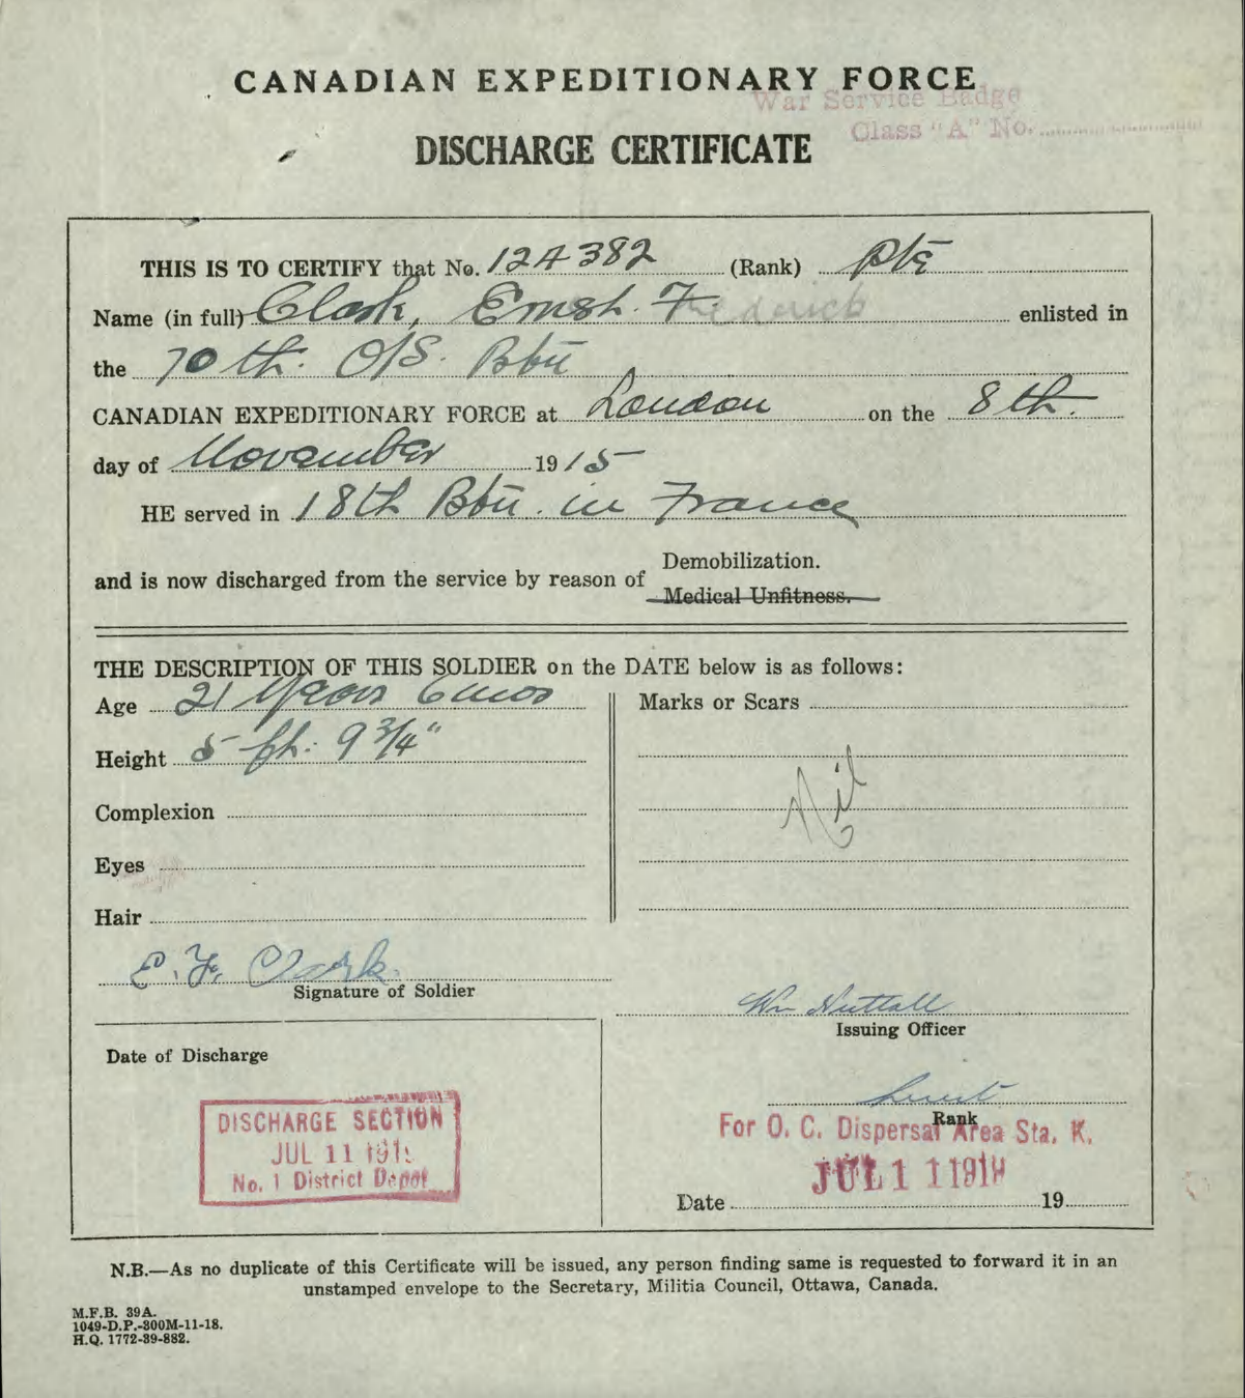 CANADIAN EXPEDITIONARY FORCE
War Service Badge
Class "A" No.
DISCHARGE CERTIFICATE
THIS IS TO CERTIFY that No. 124382 (Rank) Pte
Name (in full) Clark, Ernst. Frederick enlisted in
the 70th. O/S. Btn
CANADIAN EXPEDITIONARY FORCE at London on the 8th.
day of November 1915
HE served in 18th Btn. in France
and is now discharged from the service by reason of Demobilization.
Medical Unfitness.
THE DESCRIPTION OF THIS SOLDIER on the DATE below is as follows:
Age 21 Years 6 mos
Height 5 ft. 9 3/4"
Complexion
Eyes
Hair
Marks or Scars
Nil
E. F. Clark.
Signature of Soldier
Wm Nuttall
Issuing Officer
Lieut
Rank
For O. C. Dispersal Area Sta. K.
Date of Discharge
DISCHARGE SECTION
JUL 11 191
No. 1 District Depot
JUL 11 191
Date 19
N.B.—As no duplicate of this Certificate will be issued, any person finding same is requested to forward it in an
unstamped envelope to the Secretary, Militia Council, Ottawa, Canada.
M.F.B. 39A.
1049-D.P.-300M-11-18.
H.Q. 1772-39-882.